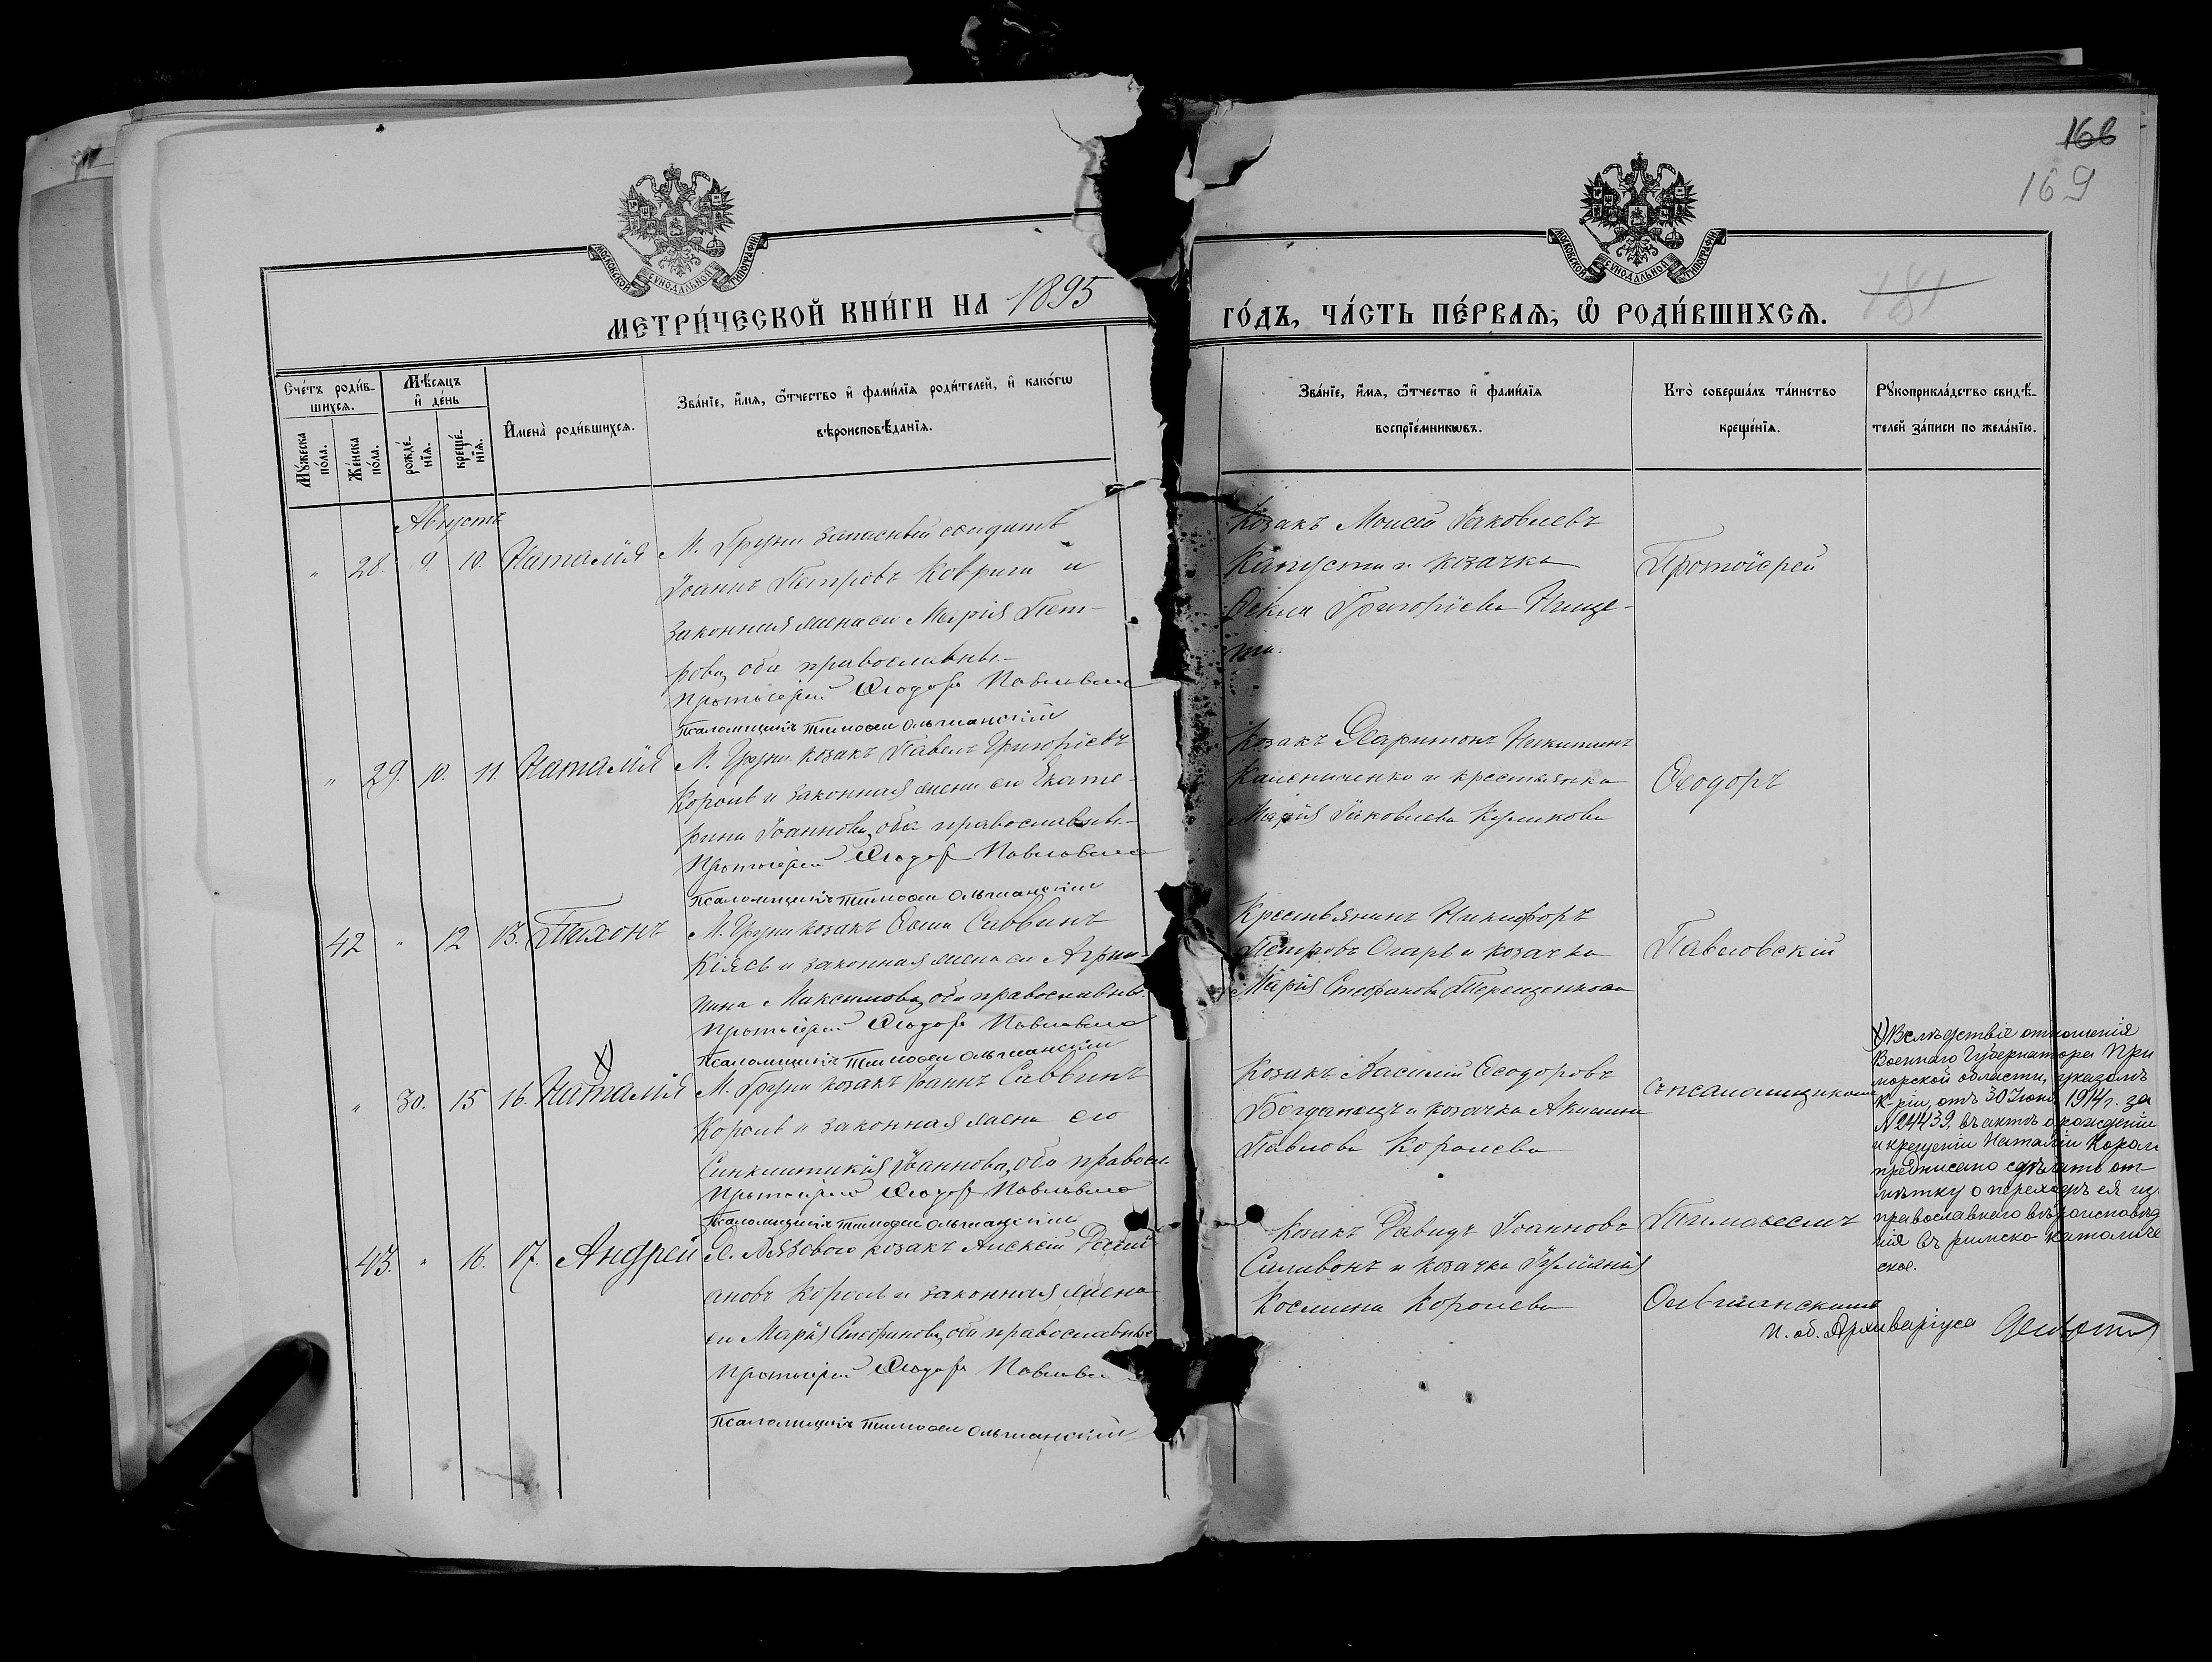 166
169
МОСКОВСКОЙ СѴНОДАЛЬНОЙ ТИПОГРАФІИ
МОСКОВСКОЙ СѴНОДАЛЬНОЙ ТИПОГРАФІИ
МЕТРИ́ЧЕСКОЙ КНИ́ГИ НА 1895
ГО́ДЪ, ЧА́СТЬ ПЕ́РВАѦ, Ѡ҆ РОДИ́ВШИХСѦ.
181
Сче́тъ роди́в-
шихсѧ.
Мꙋ́жеска по́ла.
Же́нска по́ла.
Мѣ́сѧцъ и҆ де́нь
рожде́-нїѧ.
креще́-нїѧ.
И҆мена̀ роди́вшихсѧ.
Зва́нїе, и҆́мѧ, ѻ҆́тчество и҆ фами́лїѧ роди́телей, и҆ како́гѡ
вѣроисповѣ́данїѧ.
Зва́нїе, и҆́мѧ, ѻ҆́тчество и҆ фами́лїѧ
воспрїе́мникѡвъ.
Кто̀ соверша́лъ та́инство
креще́нїѧ.
Рꙋкоприкла́дство свидѣ́-
телей за́писи по жела́нїю.
Августъ
" 28. 9. 10. Наталія
М. Груни запасный солдатъ
Іоаннъ Петровъ Коврига и
законная жена его Марія Пет-
рова, оба православны.
Протоіерей Ѳеодоръ Павловскій
Псаломщикъ Тимофей Ольшанскій
Козакъ Моисей Іаковлевъ
Капуста и козачка
Ѳекла Григоріева Нище-
та.
Протоіерей
" 29. 10. 11. Наталія
М. Груни козакъ Павелъ Григоріевъ
Король и законная жена его Екате-
рина Іоаннова, оба православны.
Протоіерей Ѳеодоръ Павловскій
Псаломщикъ Тимофей Ольшанскій
Козакъ Харитонъ Никитинъ
Калениченко и крестьянка
Марія Іаковлева Куликова
Ѳеодоръ
42 " 12 13. Тихонъ
М. Груни козакъ Ѳома Саввинъ
Кіясь и законная жена его Агрип-
пина Максимова, оба православны.
Протоіерей Ѳеодоръ Павловскій
Псаломщикъ Тимофей Ольшанскій
Крестьянинъ Никифоръ
Петровъ Огарь и козачка
Марія Стефанова Терещенкова
Павловскій
х)
" 30. 15 16. Наталія
М. Груни козакъ Іоаннъ Саввинъ
Король и законная жена его
Синклитикія Іоаннова, оба правосл.
Протоіерей Ѳеодоръ Павловскій
Псаломщикъ Тимофей Ольшанскій
Козакъ Василій Ѳеодоровъ
Богданецъ и козачка Акилина
Павлова Королева
съ псаломщикомъ
х) Вслѣдствіе отношенія
Военнаго Губернатора При
морской области, указомъ
К-ріи, отъ 30 Іюня 1914 г. за
№ 24439. въ актѣ о рожденіи
и крещеніи Наталіи Король
предписано сдѣлать от-
мѣтку о переходѣ ея изъ
православнаго вѣроисповѣда
нія въ римско-католиче
ское.
И. об. Архиваріуса
43. " 16. 17. Андрей
Козакъ Алексій
ановъ Король и законная жена
его Марія Стефанова, оба православны
Протоіерей Ѳеодоръ Павловскій
Псаломщикъ Тимофей Ольшанскій
Козакъ Давидъ Іоанновъ
Саливонъ и козачка Іуліанія
Космина Королева
Тимоѳеемъ
Ольшанскимъ